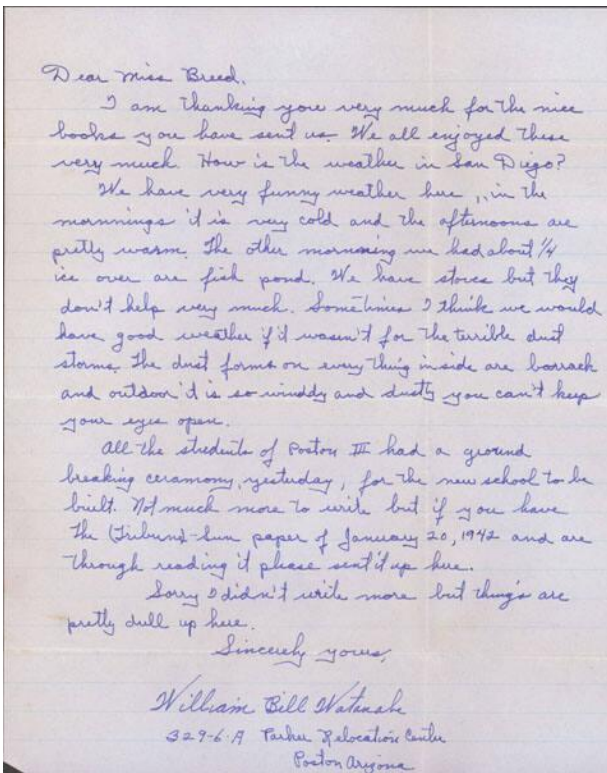 Dear Miss Breed.
I am thanking you very much for the nice
books you have sent us. We all enjoyed these
very much. How is the weather in San Diego?
We have very funny weather here, in the
mornnings it is very cold and the afternoons are
pretty warm. The other mornning we had about 1/4
ice over are fish pond. We have stoves but they
don't help very much. Sometimes I think we would
have good weather if it wasn't for the terrible dust
storms. The dust forms on every thing inside are barrack
and outdoor it is so winddy and dusty you can't keep
your eyes open.
All the students of Poston III had a ground
breaking ceramony, yesterday, for the new school to be
built. Not much more to write but if you have
the (Tribune)-Sun paper of January 20, 1942 and are
through reading it please sent it up here.
Sorry I didn't write more but thing's are
pretty dull up here.
Sincerely yours,
William Bill Watanabe
329-6-A Parker Relocation Center
Poston Arizona